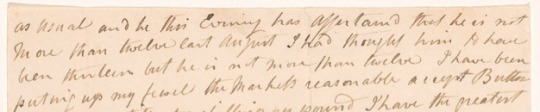 as usual and he this Evening has Assertaind that he is not
More than twelve last August I Had thought him to have
been thirteen but he is not more than twelve I have been
puting up my the Markets reasonable except Butter
pound I have the greatest